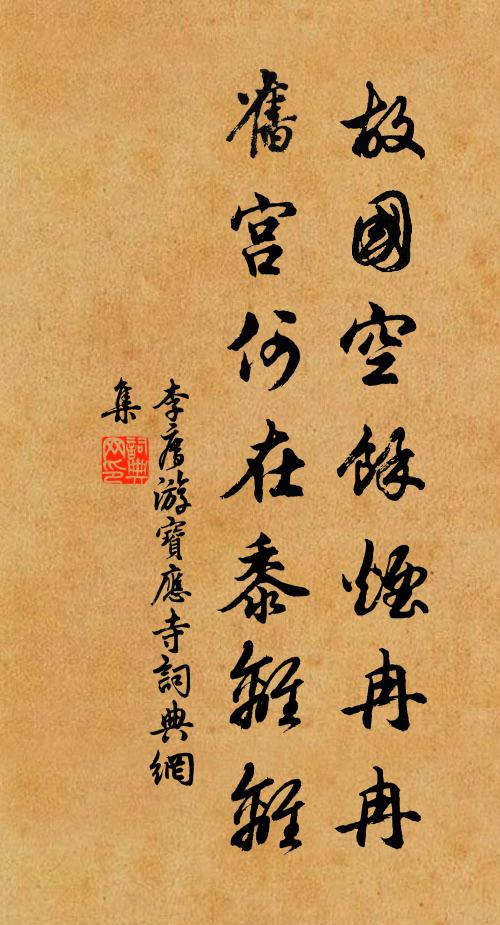 故國空餘煙冉冉
舊宮何在黍離離
李廌游寶應寺詞典網
集
詞典
网印